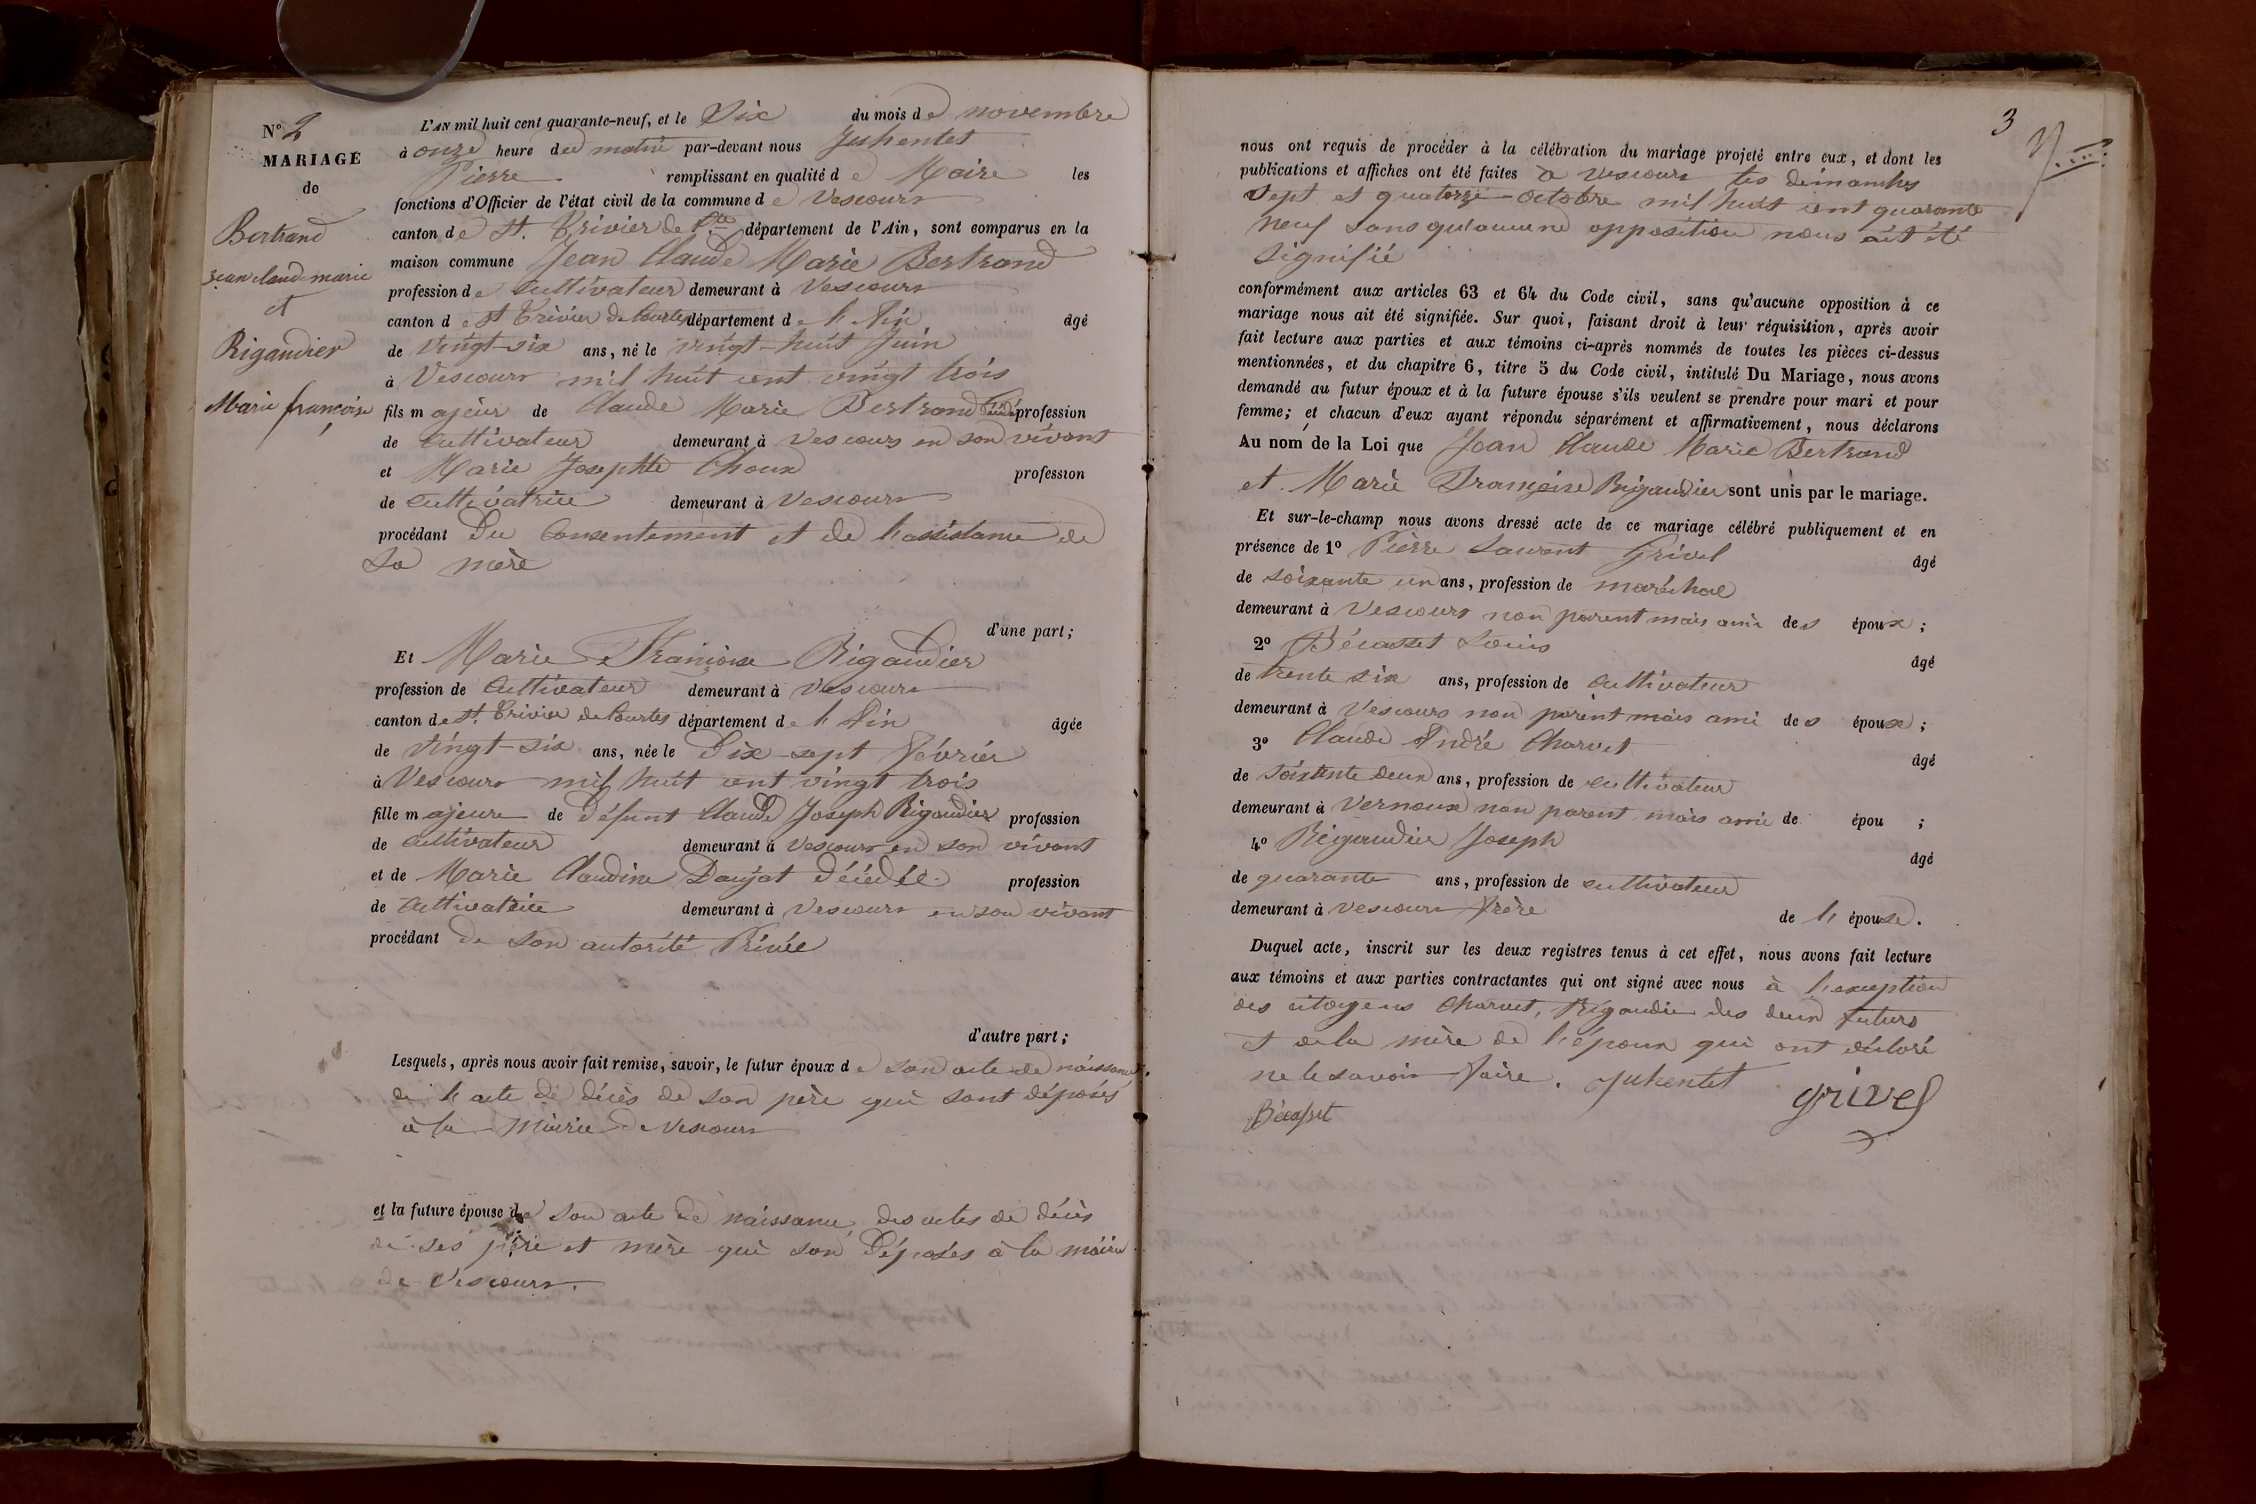 N° 2
MARIAGE
de
Bertrand
jean claud marie
et
Rigaudier
Marie françoise
L'AN mil huit cent quarante-neuf, et le Six du mois de novembre
à onze heure du matin par-devant nous Juhentet
Pierre remplissant en qualité de Maire les
fonctions d'Officier de l'état civil de la commune de Vescours
canton de St. Trivier de Ctes département de l'Ain, sont comparus en la
maison commune Jean Claude Marie Bertrand
profession de Cultivateur demeurant à Vescours
canton de St Trivier de Courtes département de l'Ain âgé
de Vingt-six ans, né le vingt-huit Juin
à Vescours mil huit cent vingt trois
fils majeur de Claude Marie Bertrand profession
de Cultivateur demeurant à Vescours en son vivant
et Marie Josephte Choux profession
de Cultivatrice demeurant à Vescours
procédant Du Consentement et de l'assistance de
sa mère
d'une part;
Et Marie Françoise Rigaudier
profession de Cultivateur demeurant à Vescours
canton de St. Trivier de Courtes département de l'Ain âgée
de Vingt-six ans, née le Dix-sept Février
à Vescours mil huit cent vingt trois
fille majeure de Défunt Claude Joseph Rigaudier profession
de Cultivateur demeurant à Vescours en son vivant
et de Marie Claudine Daujat Décédée profession
de Cultivatrice demeurant à Vescours en son vivant
procédant de son autorité Privée
d'autre part;
Lesquels, après nous avoir fait remise, savoir, le futur époux de son acte de naissance
de l'acte de décès de son père qui sont déposés
à la Mairie de Vescours
et la future épouse de son acte de naissance, des actes de décès
de ses père et mère qui son Déposés à la mairie
de Vescours.
3
nous ont requis de procéder à la célébration du mariage projeté entre eux, et dont les
publications et affiches ont été faites à Vescours les dimanches
Sept et quatorze octobre mil huit cent quarante
neuf sans qu'aucune opposition nous ait été
signifié
conformément aux articles 63 et 64 du Code civil, sans qu'aucune opposition à ce
mariage nous ait été signifiée. Sur quoi, faisant droit à leur réquisition, après avoir
fait lecture aux parties et aux témoins ci-après nommés de toutes les pièces ci-dessus
mentionnées, et du chapitre 6, titre 5 du Code civil, intitulé Du Mariage, nous avons
demandé au futur époux et à la future épouse s'ils veulent se prendre pour mari et pour
femme; et chacun d'eux ayant répondu séparément et affirmativement, nous déclarons
Au nom de la Loi que Jean Claude Marie Bertrand
et Marie Françoise Rigaudier sont unis par le mariage.
Et sur-le-champ nous avons dressé acte de ce mariage célébré publiquement et en
présence de 1° Pierre Laurent Grivel âgé
de soixante un ans, profession de maréchal
demeurant à Vescours non parent mais ami des époux;
2° Bécasset Louis âgé
de trente six ans, profession de Cultivateur
demeurant à Vescours non parent mais ami des époux;
3° Claude André Charvet âgé
de soixante deux ans, profession de cultivateur
demeurant à Vernoux non parent mais ami de épou ;
4° Rigaudier Joseph âgé
de quarante ans, profession de cultivateur
demeurant à vescours frère de l'épouse.
Duquel acte, inscrit sur les deux registres tenus à cet effet, nous avons fait lecture
aux témoins et aux parties contractantes qui ont signé avec nous à l'exception
des citoyens Charvet, Rigaudier des deux futurs
et de la mère de l'époux qui ont déclaré
ne le savoir faire. Juhentet grivel
Bécasset